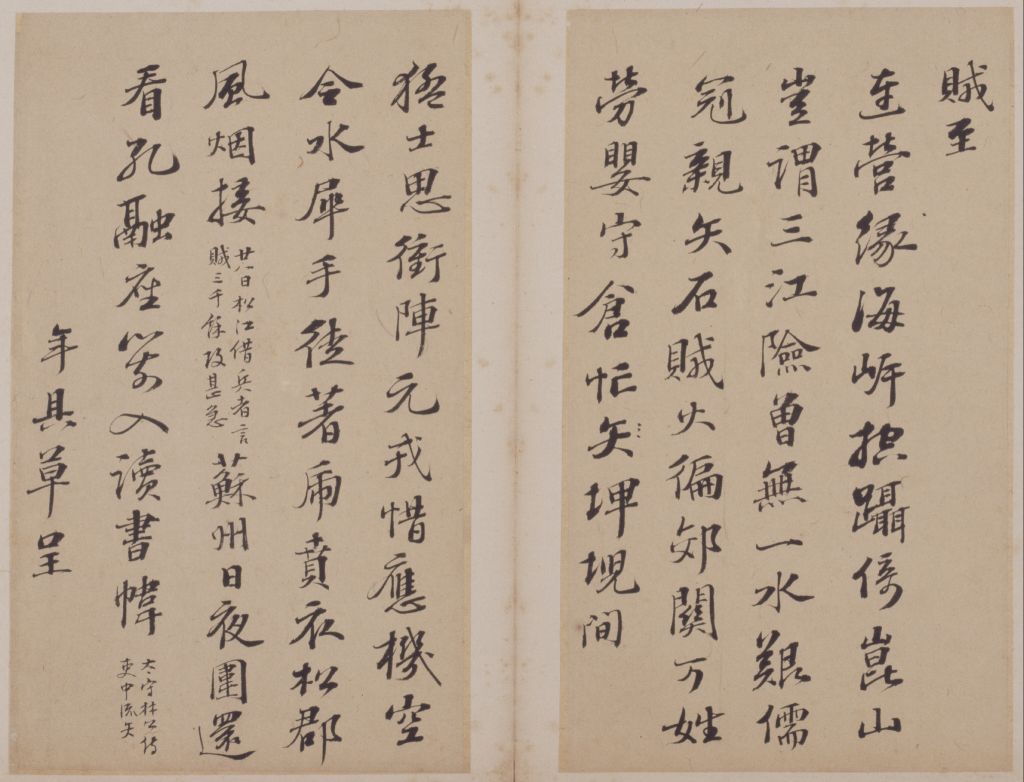 賊至
連營緣海岍躡倚崑山
豈謂三江險曾無一水艱儒
冠親矢石賊火徧郊關万姓
勞嬰守倉忙矢埤堄間
猛士思衝陣元戎惜應機空
令水犀手徒著虎賁衣松郡
風烟接
廿八日松江借兵者言
賊三千餘攻甚急
蘇州日夜圍還
看孔融座箭入讀書幃
太守林公侍
吏中流矢
年具草呈